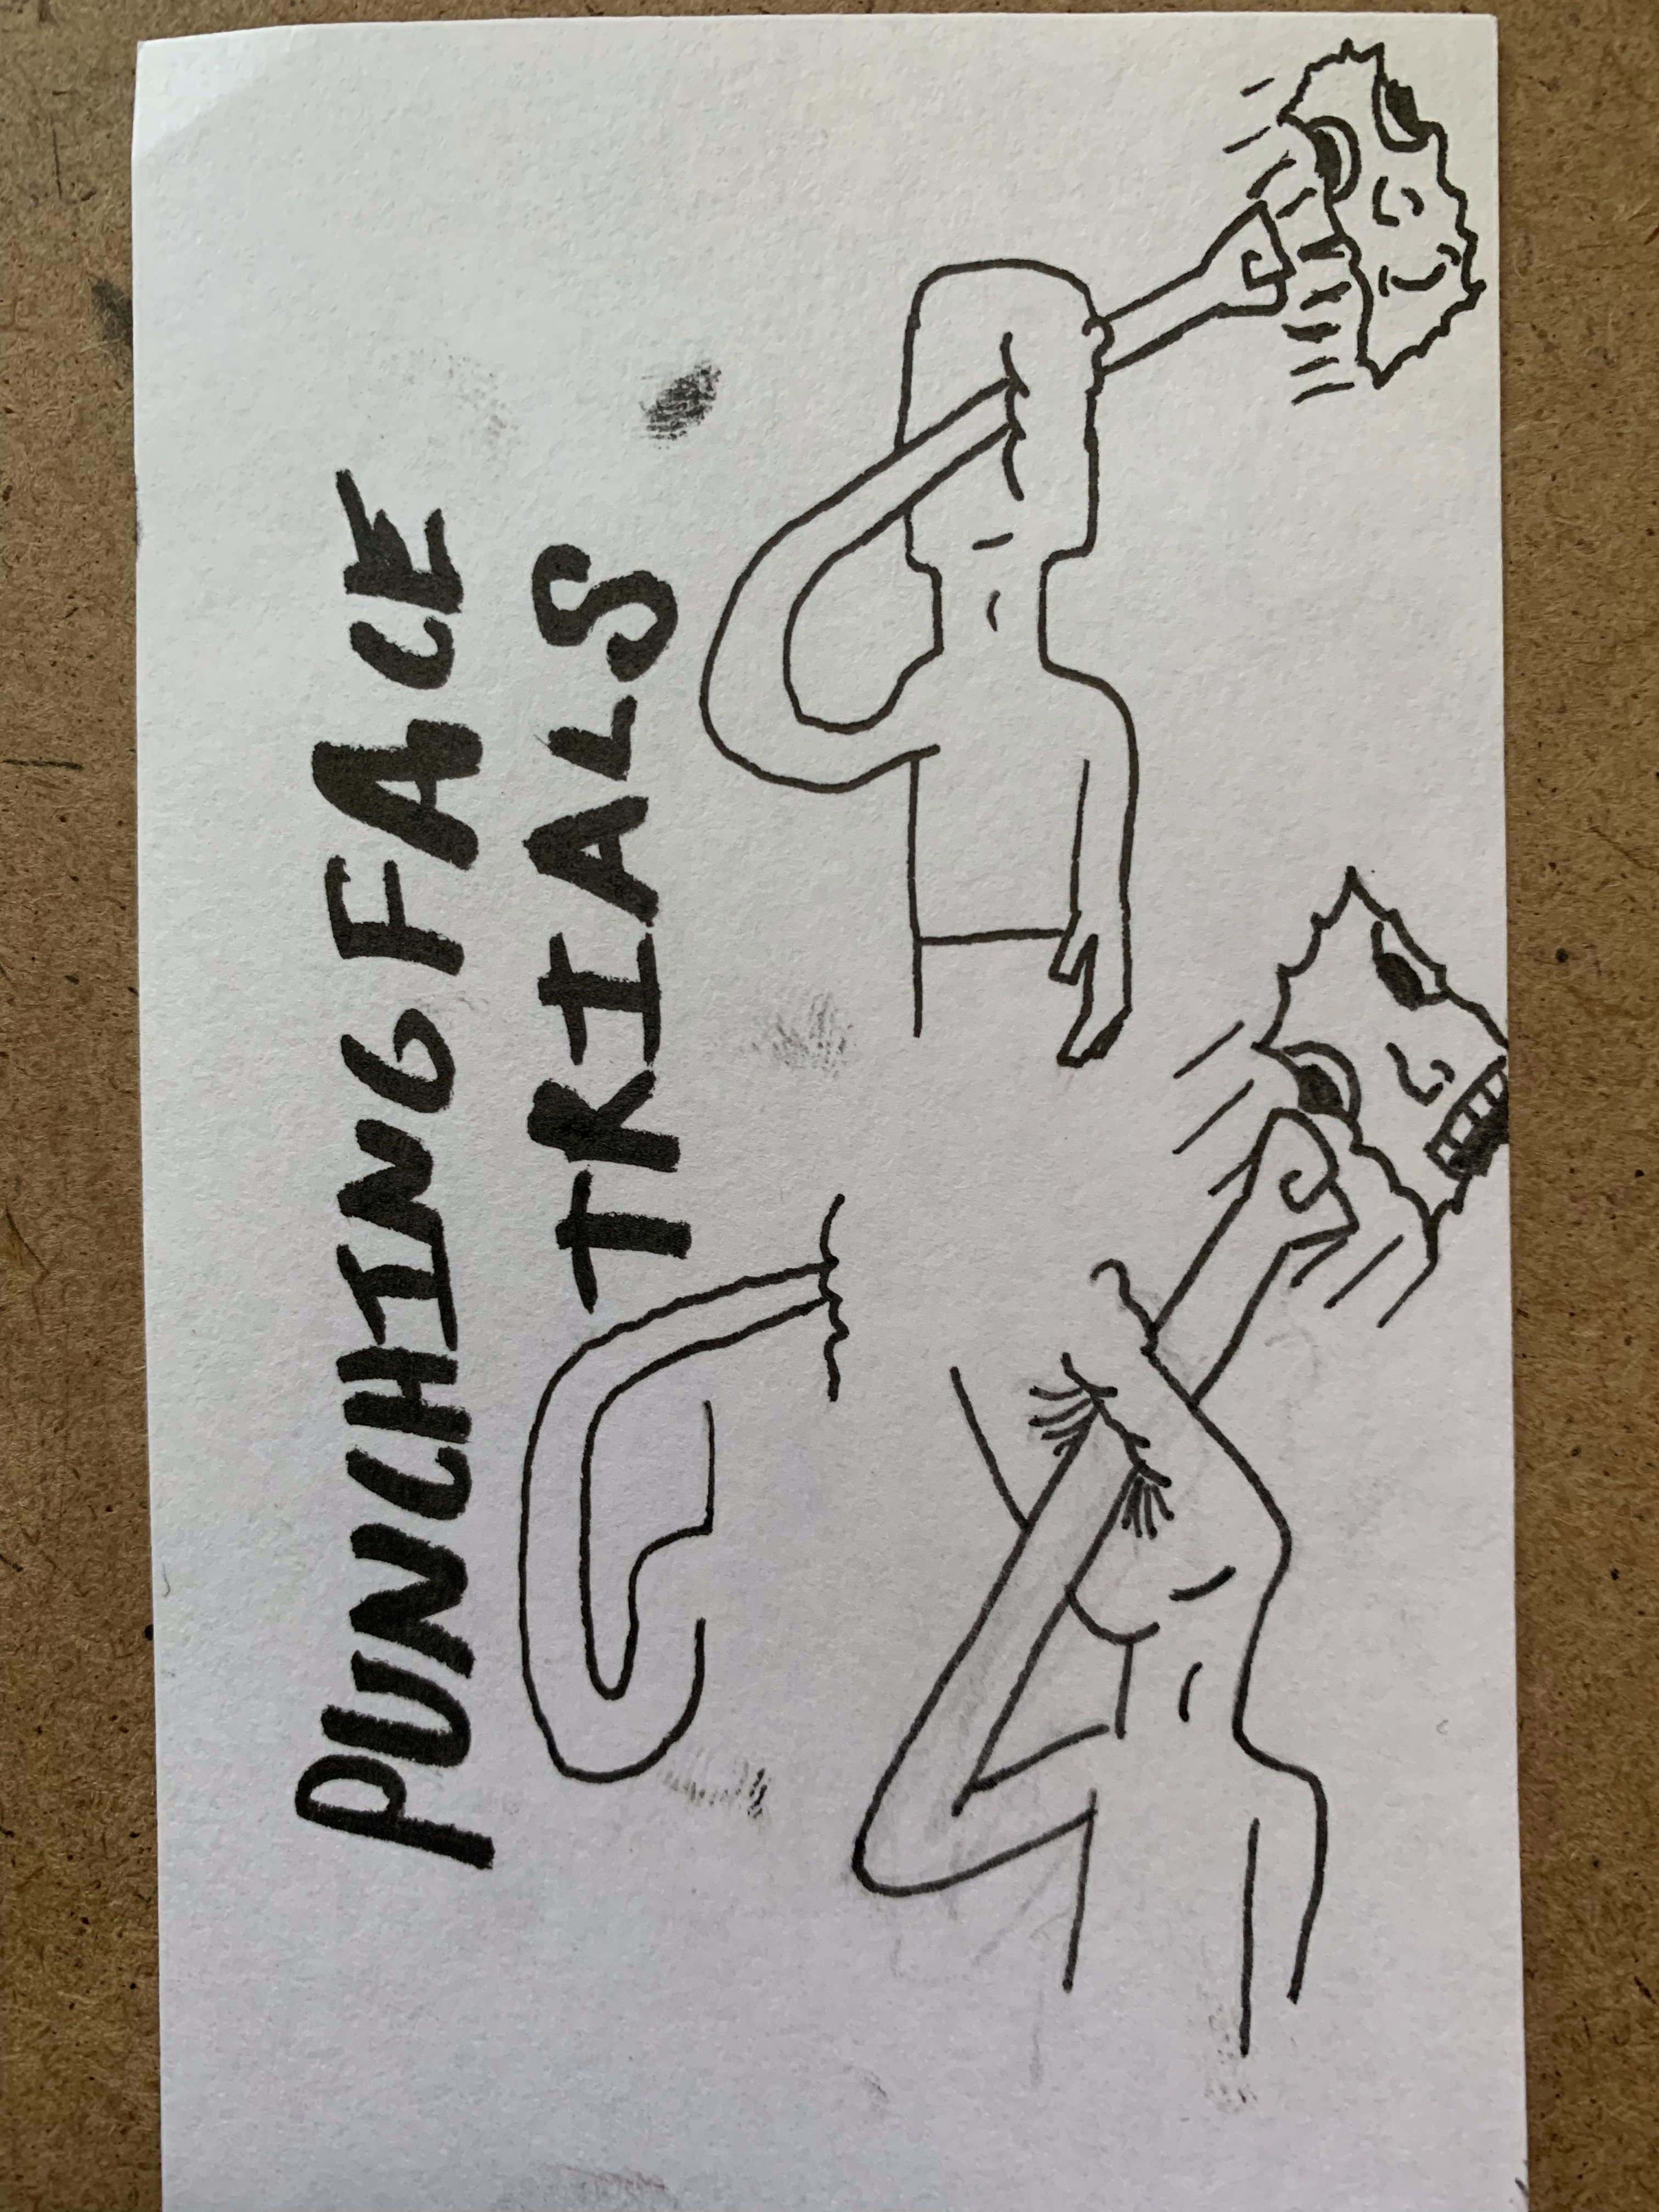 PUNCHING FACE
TRIALS